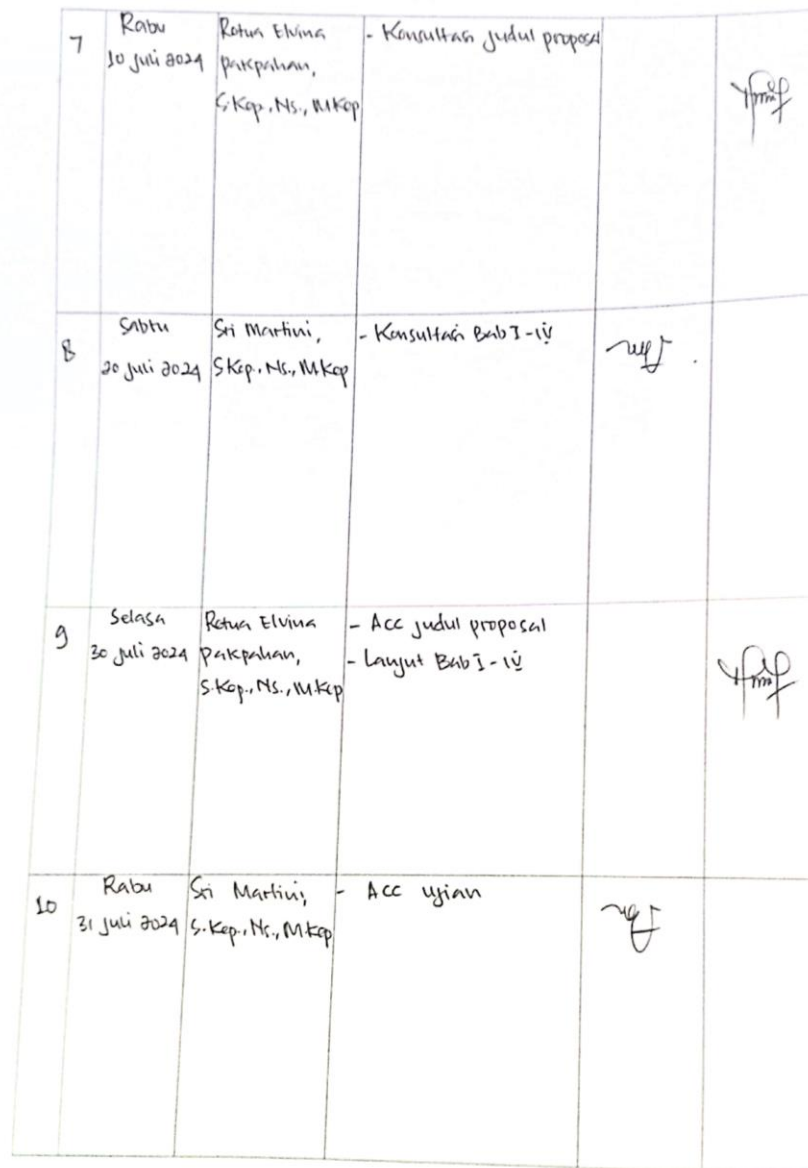 7
Rabu
10 Juli 2024
Rotua Elvina
Pakpahan,
S.Kep., Ns., M.Kep
- Konsultasi judul proposal
8
Sabtu
20 Juli 2024
Sri Martini,
S.Kep., Ns., M.Kep
- Konsultasi Bab I - IV
9
Selasa
30 Juli 2024
Rotua Elvina
Pakpahan,
S.Kep., Ns., M.Kep
- Acc judul proposal
- Lanjut Bab I - IV
10
Rabu
31 Juli 2024
Sri Martini,
S.Kep., Ns., M.Kep
- Acc ujian